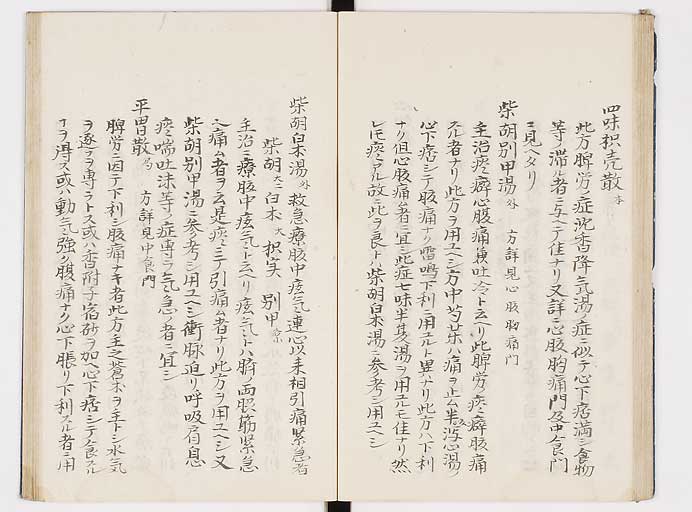 四味枳売散 本
此方脾労ノ症沈香降気湯ノ症ニ似テ心下痞満シ食物
等ノ滞ル者ニ与ヘテ佳ナリ又詳ニ心腹胸痛門及中食門
ニ見ヘタリ
柴胡別甲湯 外 方詳見心腹胸痛門
主治痰癖心腹痛兼吐冷ト云ヘリ此脾労ノ痰癖腹痛
スル者ナリ此方ヲ用ユヘシ方中芍薬ハ痛ヲ止ム半瀉心湯ノ
心下痞シテ腹痛ナク雷鳴下利ニ用ユルト異ナリ此方ハ下利
ナク但心腹痛ム者ニ宜シ此症七味半夏湯ヲ用ユルモ佳ナリ然
レモ痰アル故ニ此ヲ良トス柴胡白朮湯ニ参考シ用ユヘシ
柴胡白朮湯 外 救急療腹中痃気連心以来相引痛緊急者
柴胡 大二 白朮 大 枳実 別甲
主治ニ療腹中痃気ト云ヘリ痃気トハ臍ノ両脹筋緊急
シ痛ム者ヲ云是痰ニテ引痛ム者ナリ此方ヲ用ユヘシ又
柴胡別甲湯ニ参考シ用ユヘシ衝脉迫リ呼吸肩息
痰喘吐沫等ノ症専ラ気急ノ者ニ宜シ
平胃散 局 方詳見中食門
脾労ニ因テ下利シ腹痛ナキ者此方主之蒼朮ヲ主トシ水気
ヲ逐テヲ専ラトス或ハ香附子宿砂ヲ加ヘ心下痞シテ食スル
ヲ得ス或ハ動気強ク腹痛ナク心下脹リ下利スル者ニ用